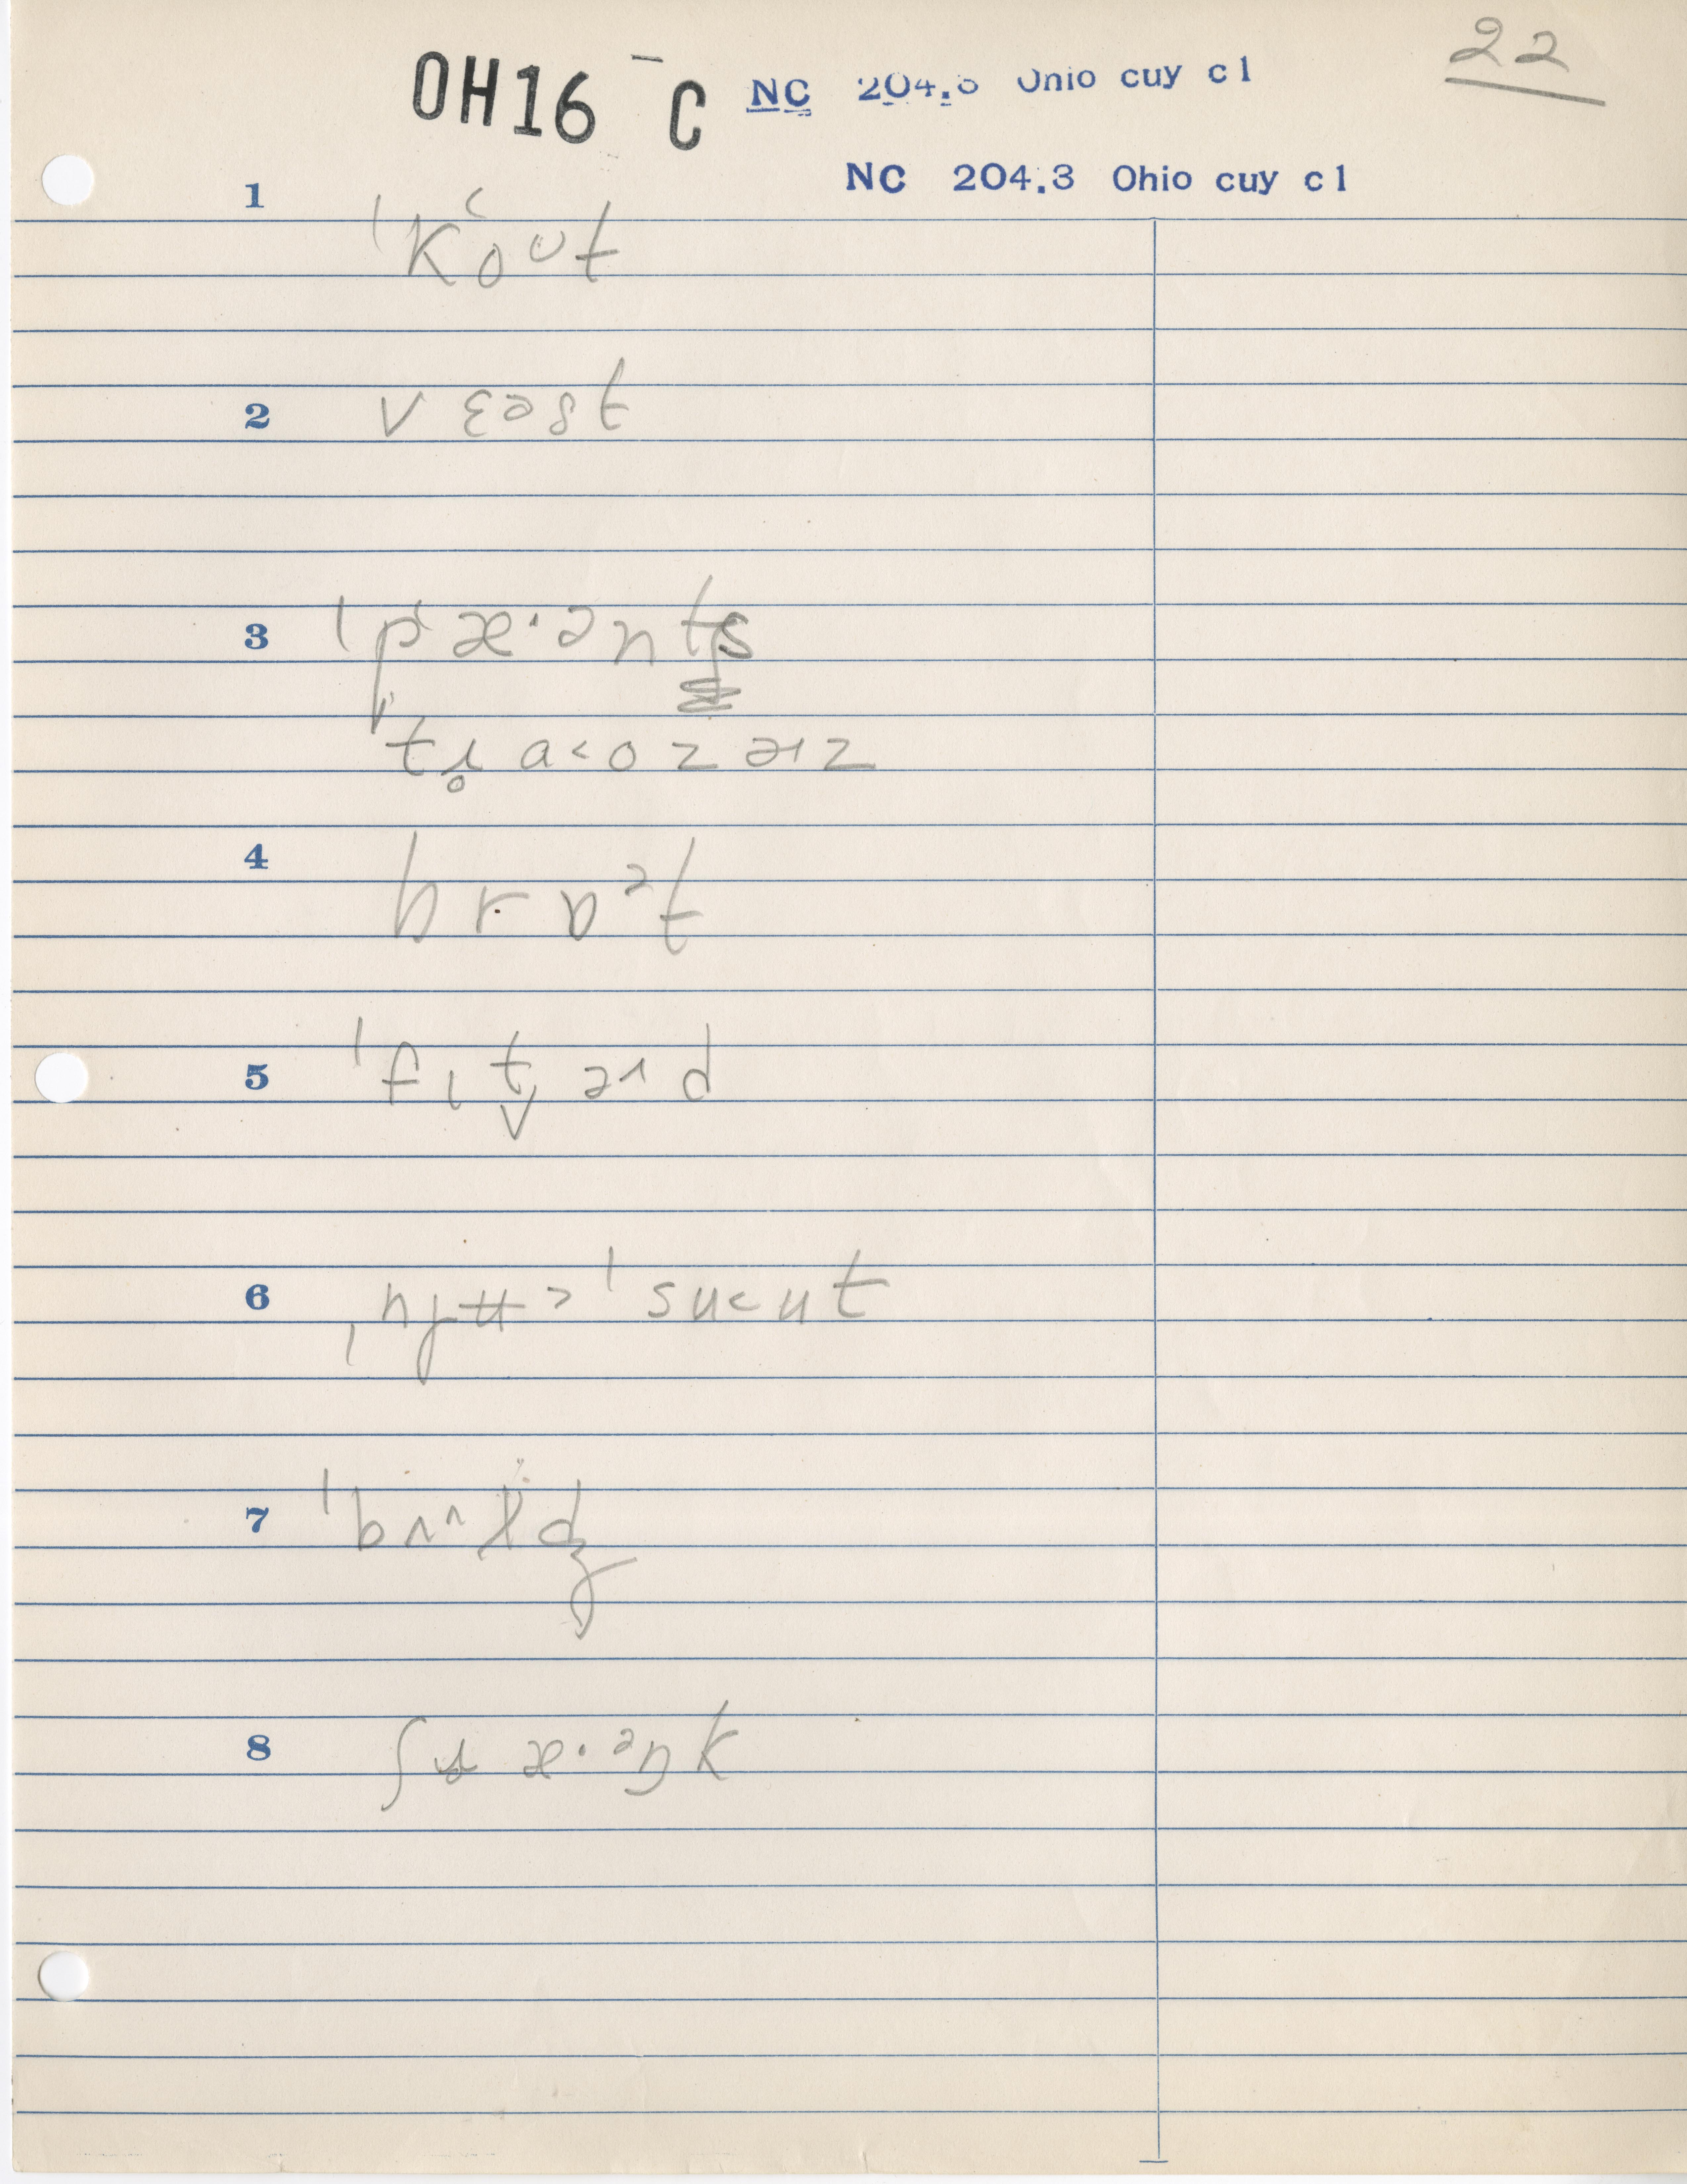 22
OH16 - C NC 204.3 Ohio cuy c1
NC 204.3 Ohio cuy c1
1 ˈkʻout
2 vɛəst
3 ˈpʻæ·ənts
tr̥a<ozəɪz
4 brɒᵊt
5 ˈfɪt̬əɪd
6 ˌnjʉ>ˈsu<ut
7
8 ʃɹæ·ᵊŋk